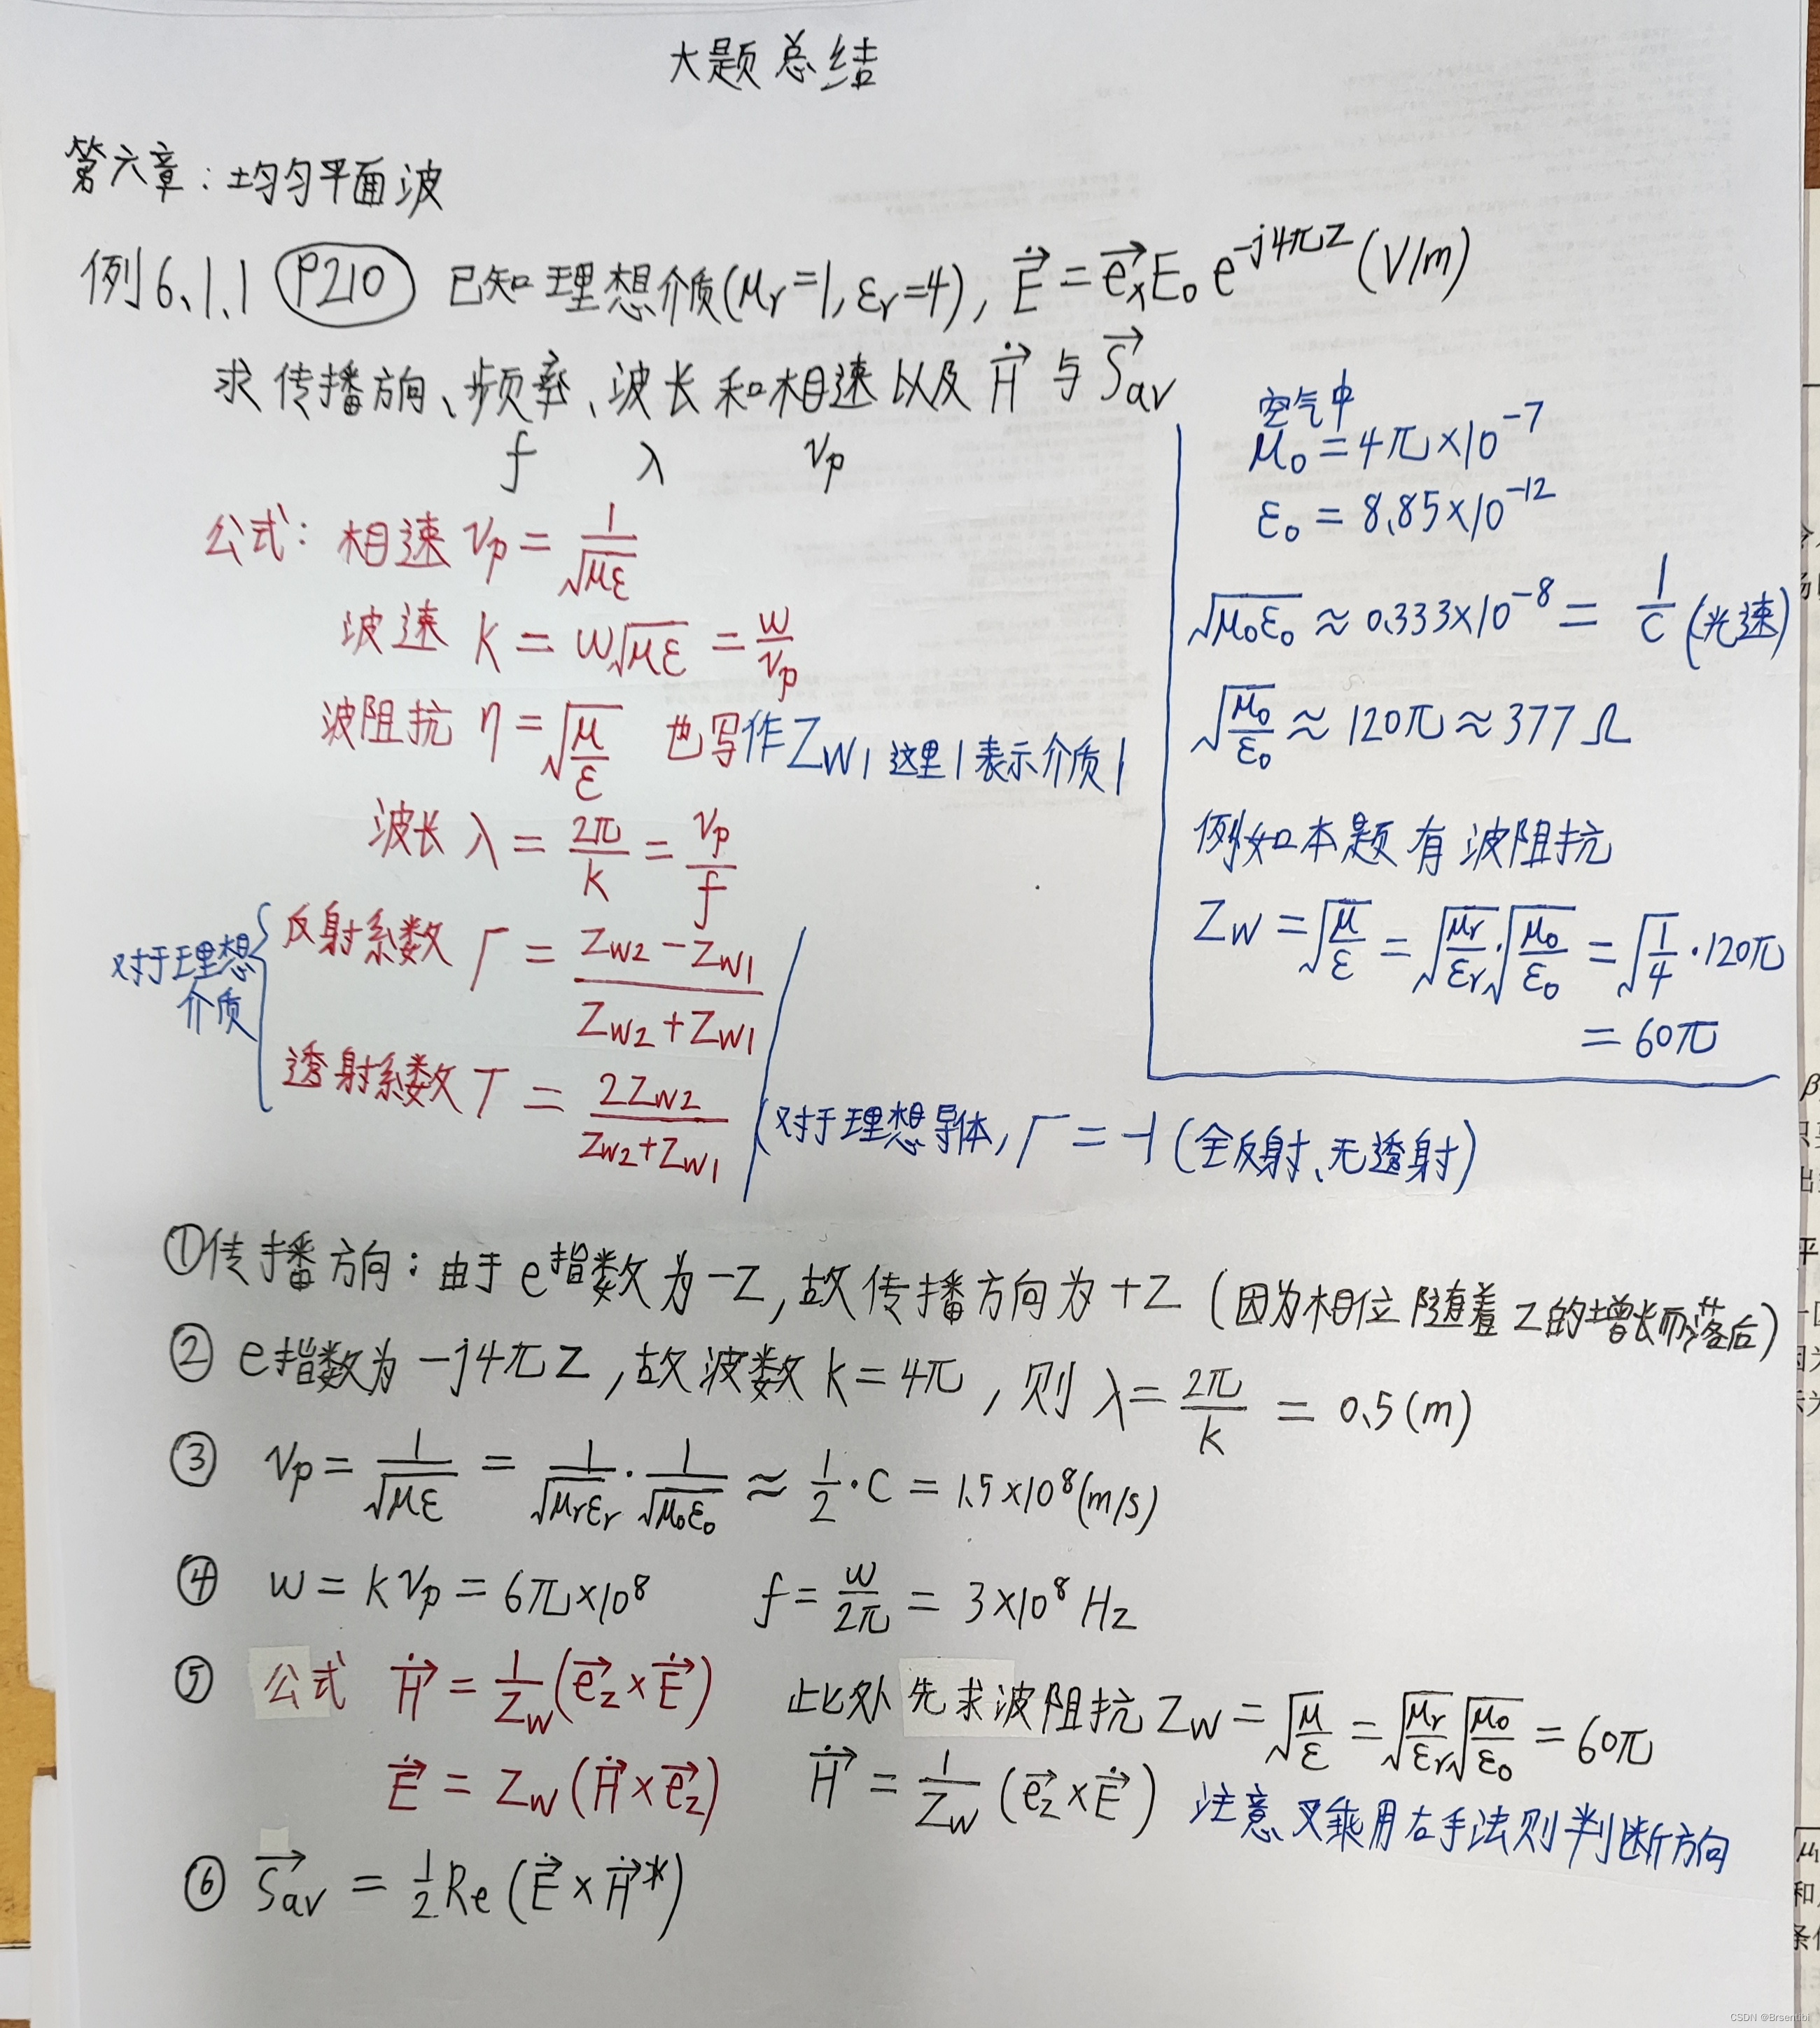 大题总结
第六章：均匀平面波
例6.1.1 P210 已知理想介质(μr=1, εr=4), Ė⃗ = e⃗x E₀ e^{-j4πz} (V/m)
求传播方向、频率、波长和相速以及 Ḣ⃗ 与 S⃗av
f λ vp
公式: 相速 vp = 1/√(με)
波速 k = w√(με) = w/vp
波阻抗 η = √(μ/ε) 也写作Zw1 这里1表示介质1
波长 λ = 2π/k = vp/f
对于理想介质
反射系数 Γ = (Zw2 - Zw1)/(Zw2 + Zw1)
透射系数 T = 2Zw2/(Zw2+Zw1)
对于理想导体, Γ = -1 (全反射、无透射)
空气中
μ₀ = 4π×10^{-7}
ε₀ = 8.85×10^{-12}
√(μ₀ε₀) ≈ 0.333×10^{-8} = 1/c (光速)
√(μ₀/ε₀) ≈ 120π ≈ 377 Ω
例如本题有波阻抗
Zw = √(μ/ε) = √(μr/εr)·√(μ₀/ε₀) = √(1/4)·120π
= 60π
①传播方向：由于e指数为-z, 故传播方向为+z (因为相位随着z的增长而落后)
② e指数为-j4πz, 故波数k=4π, 则 λ = 2π/k = 0.5(m)
③ vp = 1/√(με) = 1/√(μrεr)·1/√(μ₀ε₀) ≈ 1/2·c = 1.5×10^8(m/s)
④ w = kvp = 6π×10^8 f = w/2π = 3×10^8 Hz
⑤ 公式 Ḣ⃗ = 1/Zw (e⃗z × Ė⃗) 此处先求波阻抗 Zw = √(μ/ε) = √(μr/εr)√(μ₀/ε₀) = 60π
Ė⃗ = Zw (Ḣ⃗ × e⃗z) Ḣ⃗ = 1/Zw (e⃗z × Ė⃗) 注意叉乘用右手法则判断方向
⑥ S⃗av = 1/2 Re (Ė⃗ × Ḣ⃗*)
CSDN @Brsentibi